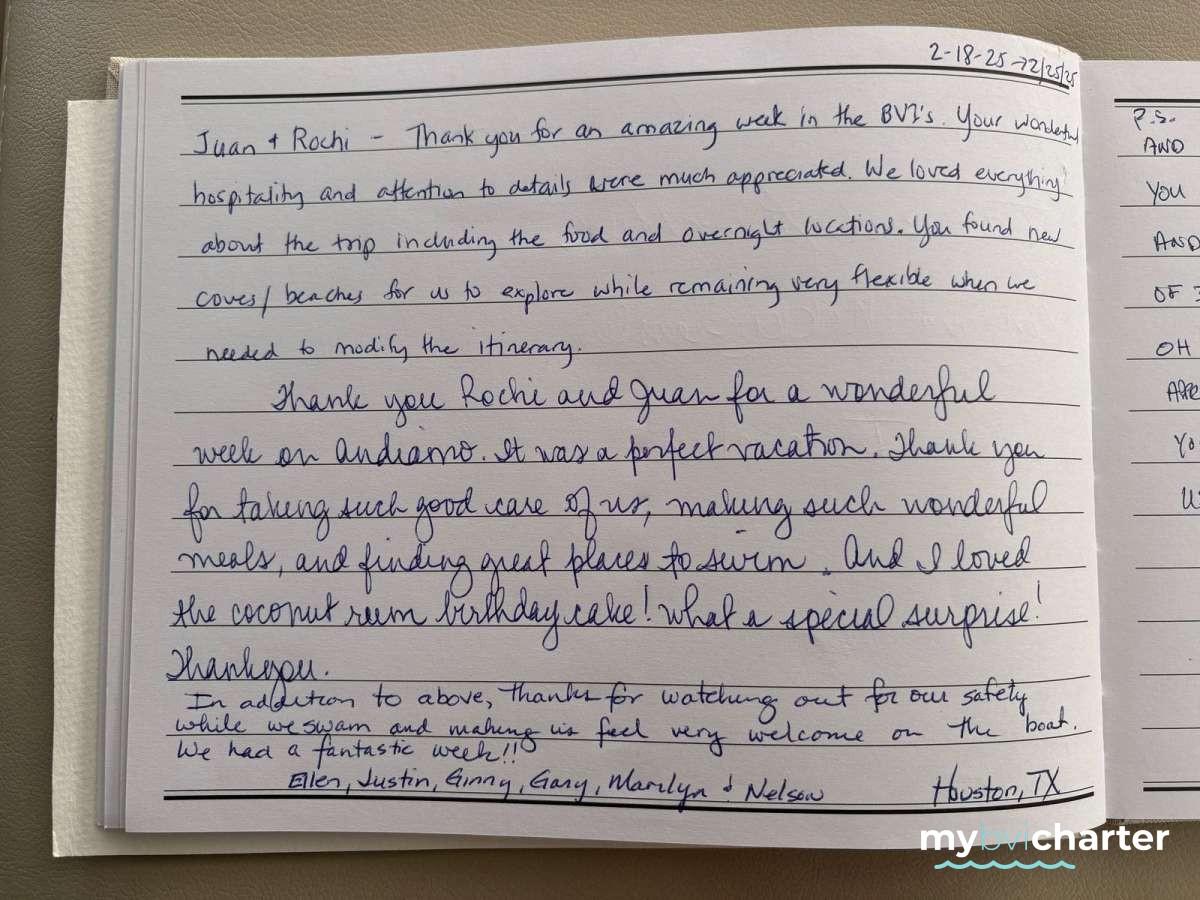 2-18-25 → 2/25/25
Juan + Rochi - Thank you for an amazing week in the BVI's. Your wonderful
hospitality and attention to details were much appreciated. We loved everything
about the trip including the food and overnight locations. You found new
coves/beaches for us to explore while remaining very flexible when we
needed to modify the itinerary.
Thank you Rochi and Juan for a wonderful
week on Andiamo. It was a perfect vacation. Thank you
for taking such good care of us, making such wonderful
meals, and finding great places to swim. And I loved
the coconut rum birthday cake! What a special surprise!
Thank you.
In addition to above, thanks for watching out for our safety
while we swam and making us feel very welcome on the boat.
We had a fantastic week!!
Ellen, Justin, Ginny, Gary, Marilyn & Nelson Houston, TX
P.S.
AND
YOU
AND
OF
OH
YO
mybvicharter